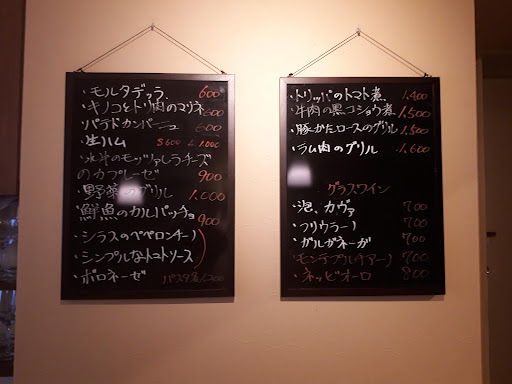 ・モルタデッラ 600
・キノコとトリ肉のマリネ 600
・パテドカンパーニュ 600
・生ハム S 600 L 1.000
・水牛のモッツァレラチーズ
のカプレーゼ 900
・野菜のグリル 1.000
・鮮魚のカルパッチョ 900
・シラスのペペロンチーノ
・シンプルなトマトソース
・ボロネーゼ パスタ各1.200
・トリッパのトマト煮 1.400
・牛肉の黒コショウ煮 1.500
・豚かたロースのグリル 1.500
・ラム肉のグリル 1.600
グラスワイン
・泡、カヴァ 700
・フリウラーノ 700
・ガルガネーガ 700
・モンテプルチアーノ 700
・ネッビオーロ 800